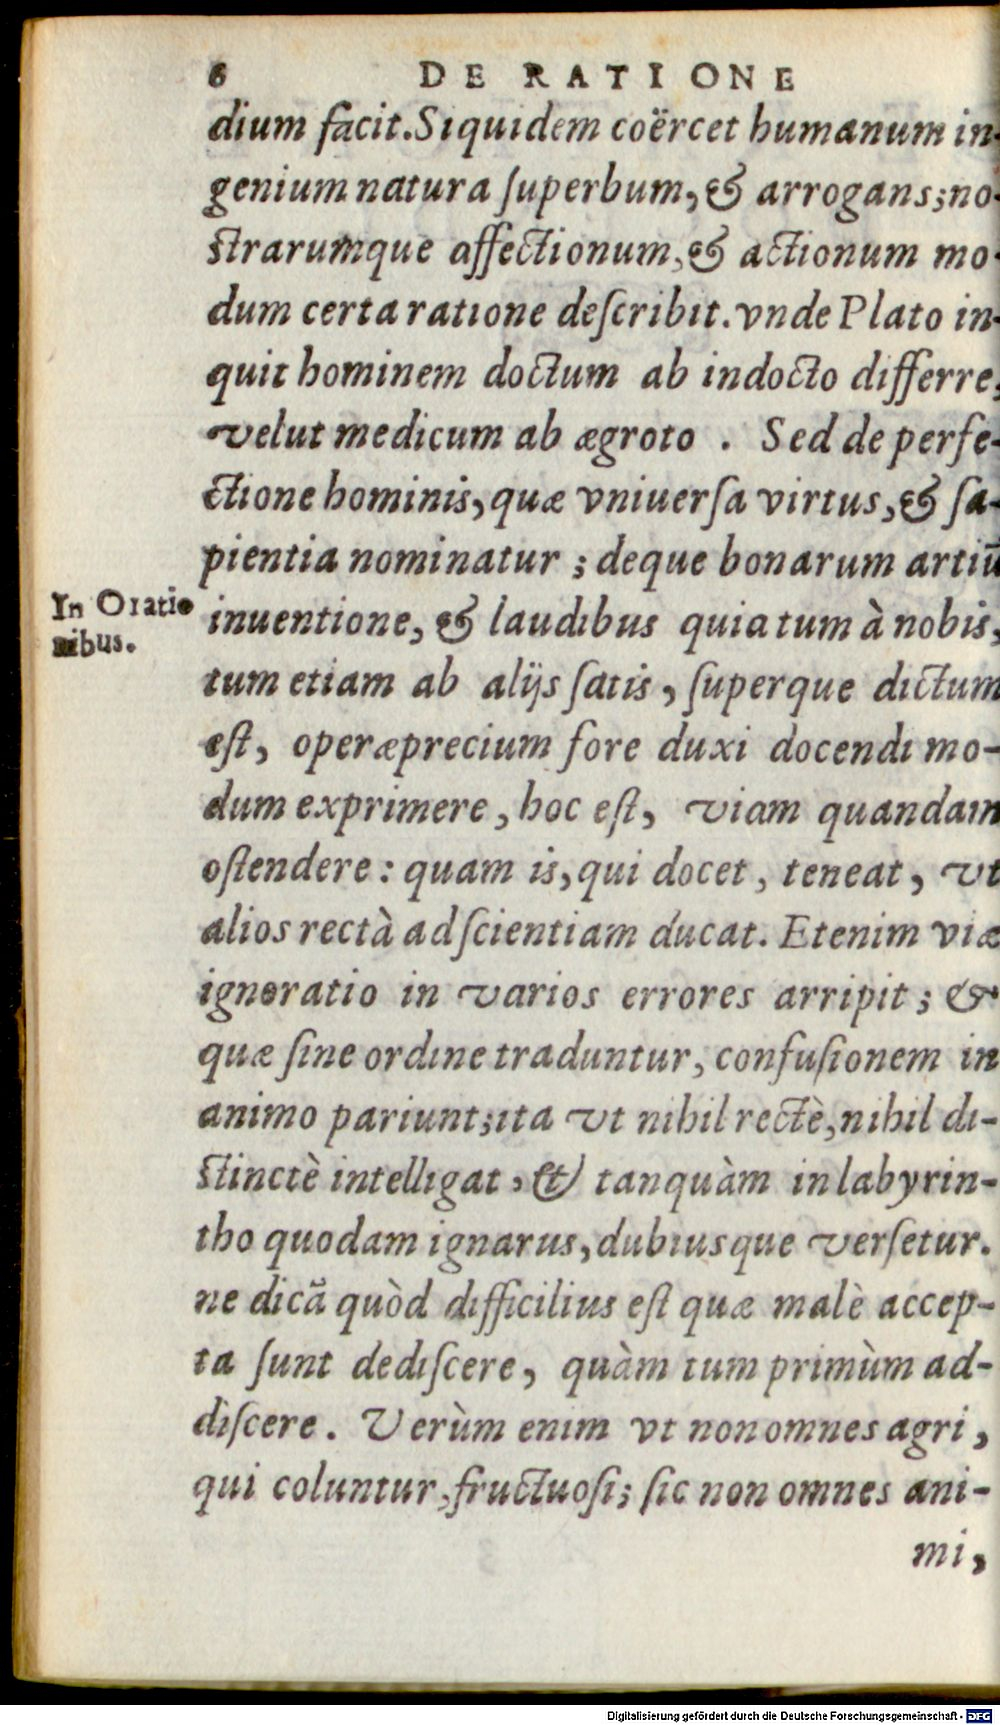 6 DE RATIONE
dium facit. Siquidem coërcet humanum in-
genium natura ſuperbum, & arrogans; no-
ſtrarumque affectionum, & actionum mo-
dum certa ratione deſcribit. vnde Plato in-
quit hominem doctum ab indocto differre,
velut medicum ab ægroto . Sed de perfe-
ctione hominis, quæ vniuerſa virtus, & ſa-
pientia nominatur ; deque bonarum artiū
In Oratio
nibus.
inuentione, & laudibus quia tum à nobis,
tum etiam ab alijs ſatis, ſuperque dictum
eſt, operæprecium fore duxi docendi mo-
dum exprimere, hoc eſt, viam quandam
oſtendere : quam is, qui docet, teneat, vt
alios rectà ad ſcientiam ducat. Etenim viæ
ignoratio in varios errores arripit ; &
quæ ſine ordine traduntur, confuſionem in
animo pariunt; ita vt nihil rectè, nihil di-
ſtinctè intelligat, & tanquàm in labyrin-
tho quodam ignarus, dubiusque verſetur.
ne dicā quòd difficilius eſt quæ malè accep-
ta ſunt dediſcere, quàm tum primùm ad-
diſcere. Verùm enim vt non omnes agri,
qui coluntur, fructuoſi; ſic non omnes ani-
mi,
Digitalisierung gefördert durch die Deutsche Forschungsgemeinschaft - DFG